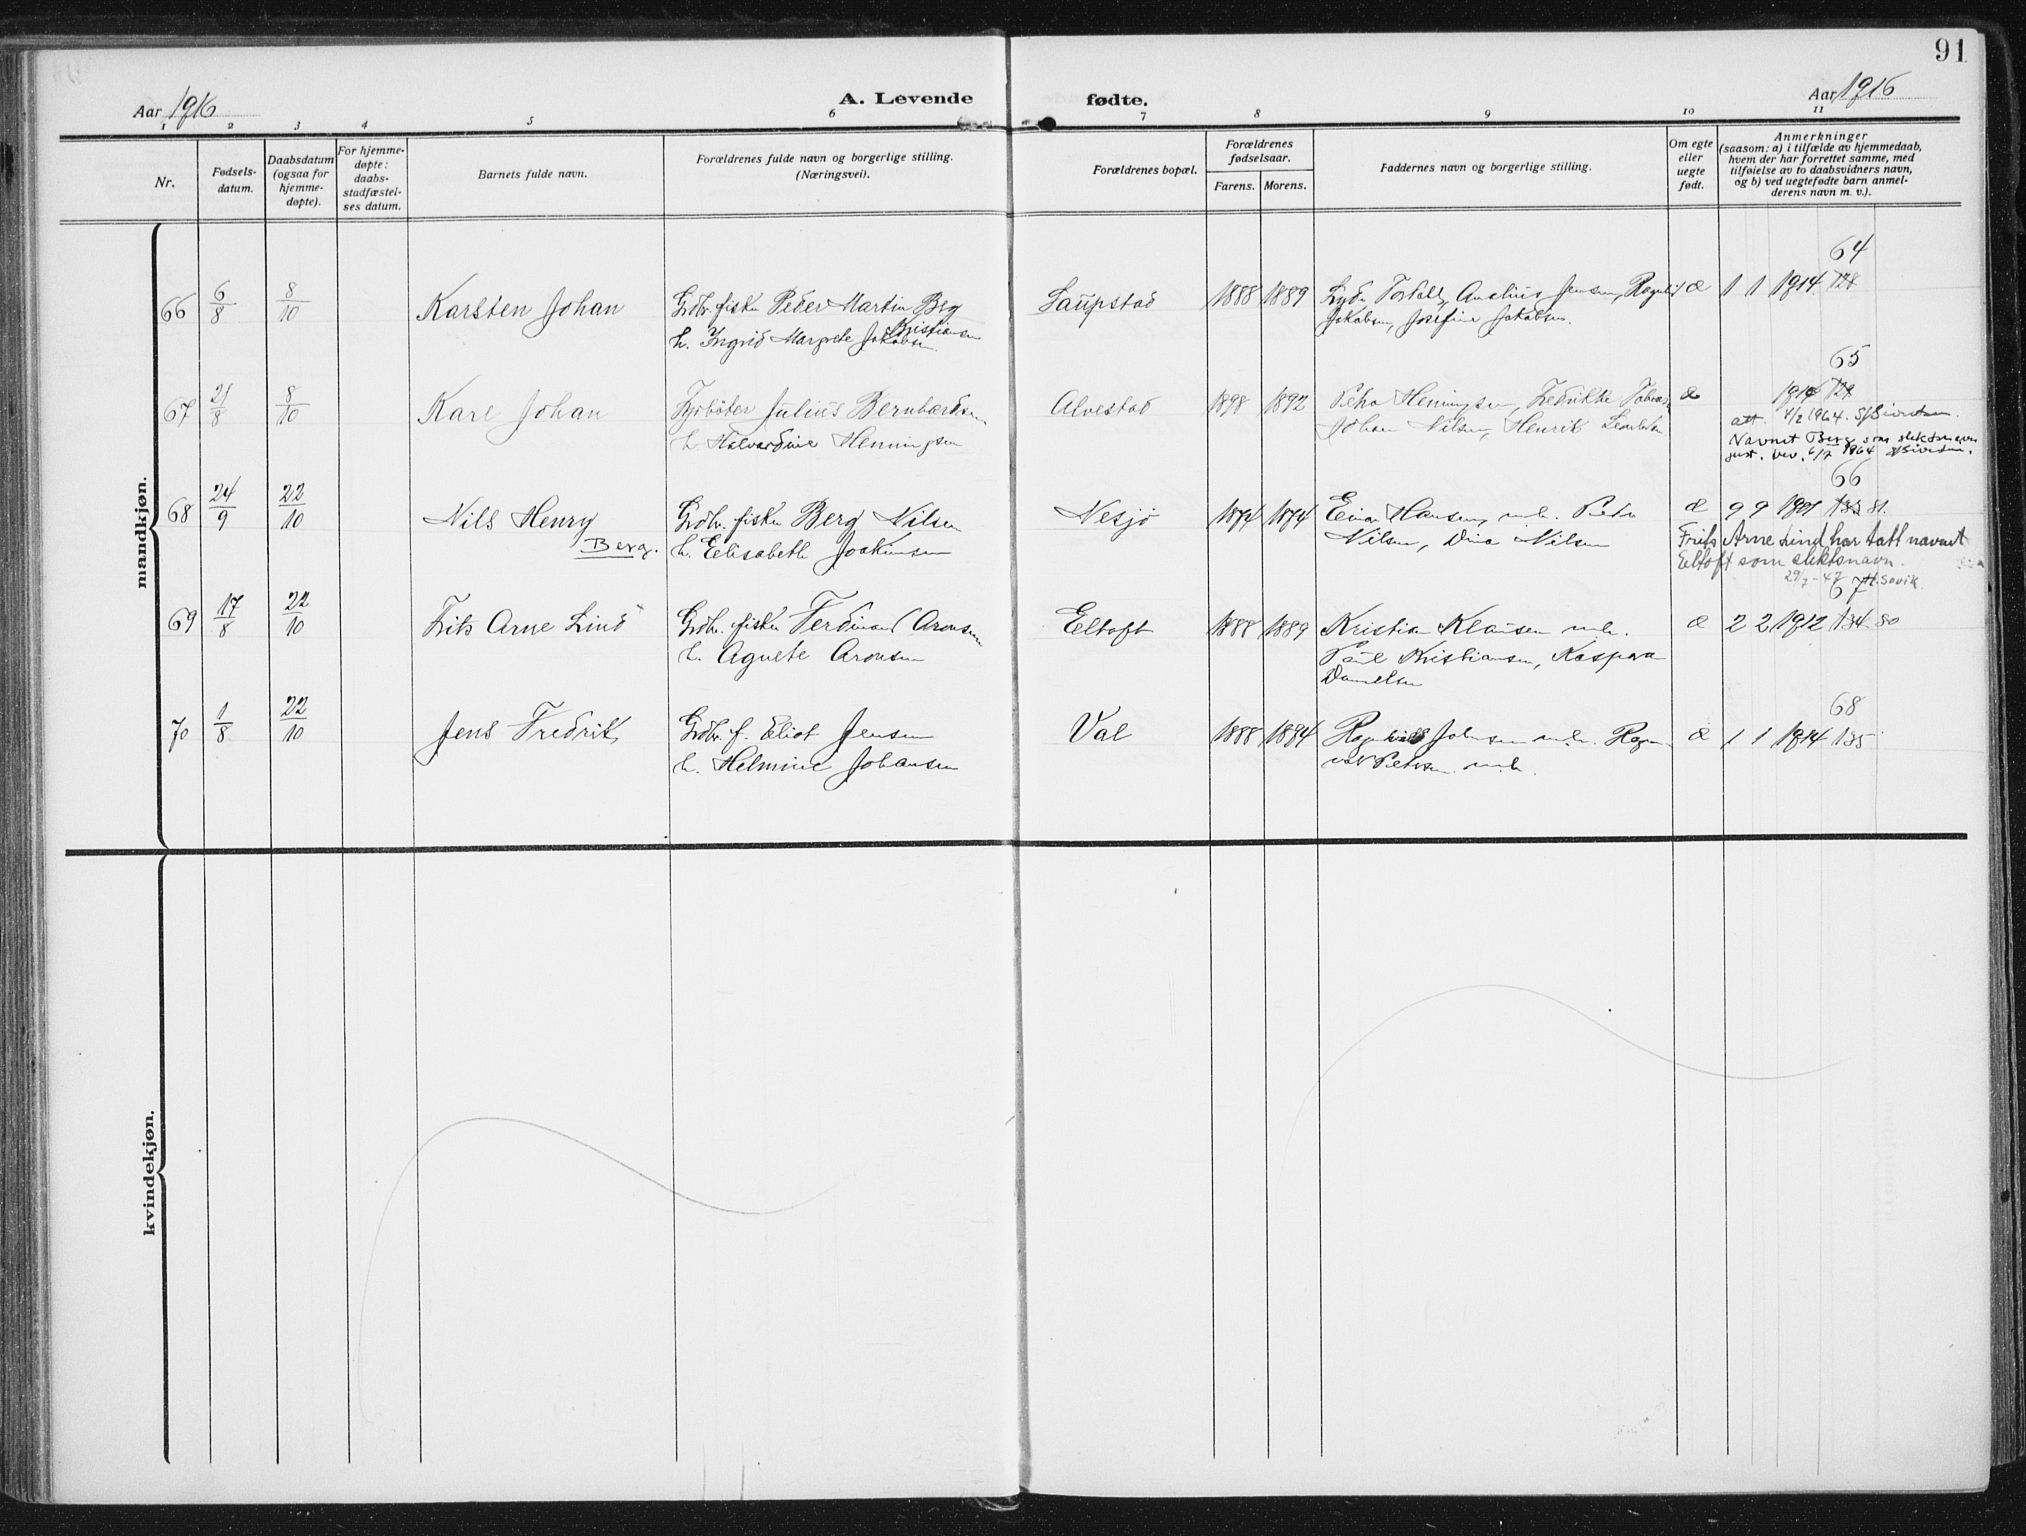 91
Aar 1916
A. Levende fødte.
Aar 1916
1 2 3 4 5 6 7 8 9 10 11
Nr.
Fødsels-
datum.
Daabsdatum
(ogsaa for
hjemme-
døpte).
For hjemme-
døpte:
daabs-
stadfæstel-
ses datum.
Barnets fulde navn.
Forældrenes fulde navn og borgerlige stilling.
(Næringsvei).
Forældrenes bopæl.
Forældrenes
fødselsaar.
Farens. Morens.
Faddernes navn og borgerlige stilling.
Om egte
eller
uegte
født.
Anmerkninger
(saasom: a) i tilfælde av hjemmedaab,
hvem der har forrettet samme, med
tilføielse av to daabsvidners navn,
og b) ved uegtefødte barn anmel-
derens navn m. v.).
mandkjøn.
64
66 6/8 8/10 Karsten Johan Grdbr. fisker Peder Martin Berg Laupstad 1888 1889 Jensen, Æ 1 1 1914 128
Kristiansen
h. Ingrid Margrete Jakobsen Jakobsen, Josefine Jakobsen.
65
67 21/8 8/10 Kare Johan Julius Bernhardsen Alvestad 1898 1892 Petra Henningsen, Fredrikke Æ 1914
h. Halvardine Henningsen Johan Nilsen, Henrik
att. 4/2 1964. S/Sivertsen.
Navnet Berg som slektsnavn
just. bev. 6/7 1964
66
68 24/9 22/10 Nils Henry Grdbr. fisker Berg Nilsen Nesjö 1874 1874 Einar Hansen, m.h. Petra Æ 9 9 1901 133 81.
Berg. h. Elisabeth Joakimsen Nilsen, Dina Nilsen
Frits Arne Lind har tatt navnet
Eltoft som slektsnavn.
29/7-47 H. Søvik.
67
69 17/8 22/10 Frits Arne Lind Grdbr. fisker Ferdinand Aronsen Eltoft 1888 1889 Kristian Klausen m.h. Æ 2 2 1912 134 80
h. Agnete Aronsen Paul Kristiansen, Kaspara
Danielsen
68
70 1/8 22/10 Jens Fredrik Grdbr. f. Eliot Jensen Val 1888 1894 Johnsen m.h. Ragn- Æ 1 1 1914 135
h. Helmine Johansen vald Petersen m.h.
kvindekjøn.